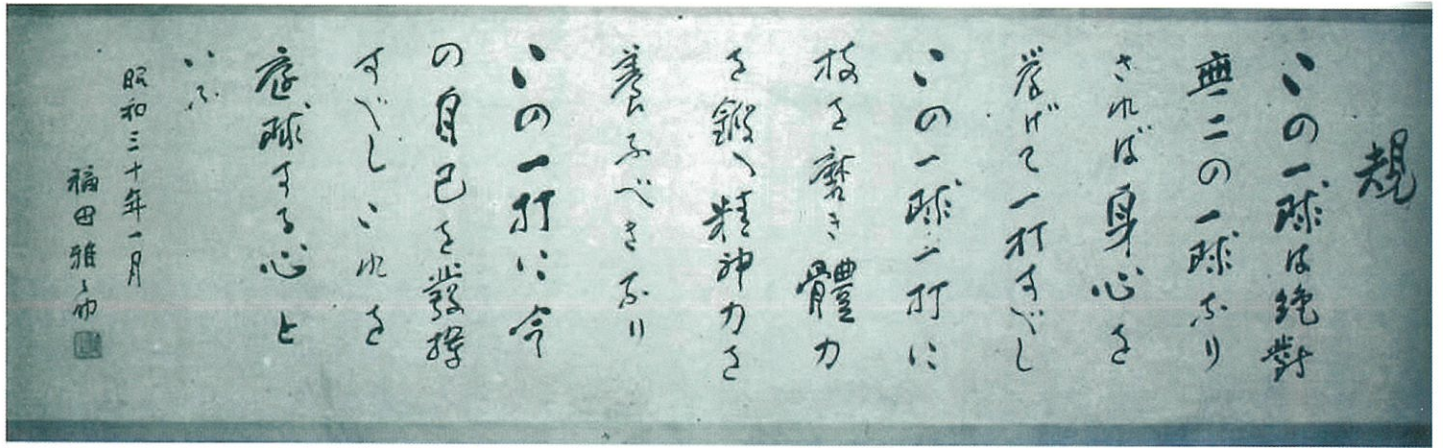 規
この一球は絶對
無二の一球なり
されば身心を
挙げて一打すべし
この一球一打に
技を磨き體力
を鍛へ精神力を
養ふべきなり
この一打に今
の自己を發揮
すべしこれを
庭球する心と
いふ
昭和三十年一月
福田雅之助